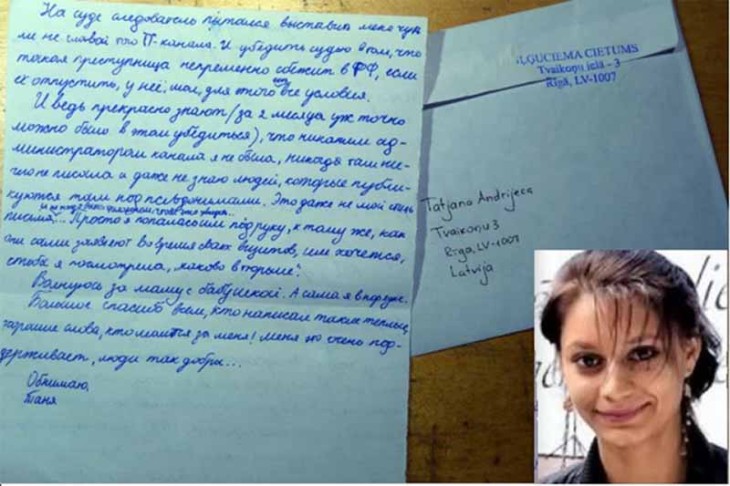 На суде следователь пытался выставить меня чуть
ли не главой ТГ-канала. И убедить судью в том, что
такая преступница непременно сбежит в РФ, если
её отпустить, у неё, мол, для этого все условия.
И ведь прекрасно знают (за 2 месяца уж точно
можно было в этом убедиться), что никаким ад-
министратором канала я не была, никогда там ни-
чего не писала и даже не знаю людей, которые публи-
куются там под псевдонимами. Это даже не мой стиль
письма... Просто я попалась им под руку, к тому же, как
они сами заявляют во время своих визитов, им хочется,
чтобы я посмотрела, „каково в тюрьме“.
Волнуюсь за маму с бабушкой. А сама я в порядке.
Большое спасибо всем, кто написал таких теплых,
хорошие слова, кто молится за меня! Меня это очень под-
держивает, люди так добры...
Обнимаю,
Таня
ILĢUCIEMA CIETUMS
Tvaikoņu ielā - 3
Rīgā, LV-1007
Tatjana Andrijeca
Tvaikoņu 3
Rīga, LV-1007
Latvija